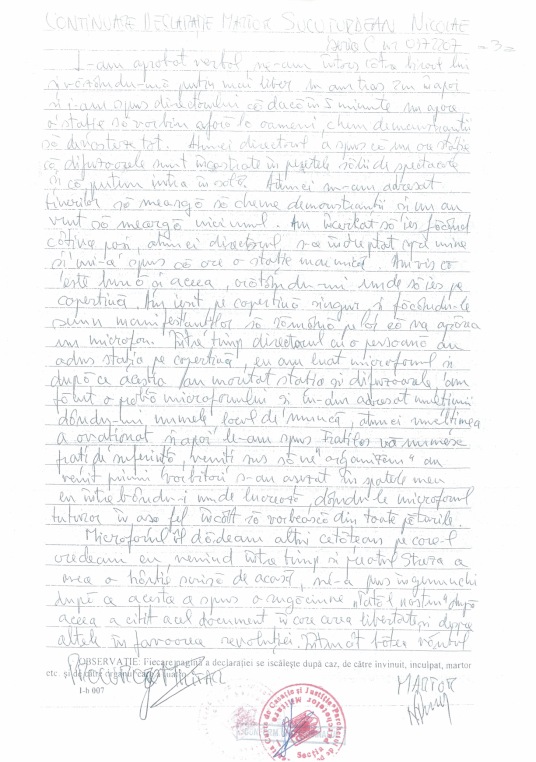 CONTINUARE DECLARAȚIE MARTOR SUCUTURDEAN NICOLAE
Seria C nr 0372207 - 3 -
I-am aprobat verbal, m-am întors către biroul lui
și văzându-mă puțin mai liber m-am tras în înapoi
și i-am spus directorului că dacă în 5 minute nu apare
o stație să vorbim afară la oameni, chem demonstranții
să devasteze tot. Atunci directorul a spus că nu au stație
că difuzoarele sunt încastrate în pereții sălii de spectacole
și că putem intra în sală. Atunci m-am adresat
tinerilor să meargă să cheme demonstranții și nu au
vrut să meargă nici unul. Am încercat să ies făcând
câțiva pași, atunci directorul s-a îndreptat spre mine
și mi-a spus că are o stație mai mică. Am zis că
este bună și aceea, arătându-mi unde să ies pe
copertină. Am ieșit pe copertină singur și făcându-le
semn manifestanților să rămână pe loc că va apărea
un microfon. Între timp directorul cu o persoană au
adus stația pe copertină, eu am luat microfonul și
după ce aceștia au montat stația și difuzoarele, am
făcut o probă microfonului și m-am adresat mulțimii
dându-mi numele, locul de muncă, atunci mulțimea
a ovaționat și apoi le-am spus fraților
frați de suferință, veniți sus să ne "organizăm" au
venit primii vorbitori s-au așezat în spatele meu
eu întrebându-i unde lucrează, dându-le microfonul
tuturor în așa fel încât să vorbească din toate păturile.
Microfonul îl dădeam altui cetățean pe care-l
credeam eu, venind între timp și
avea o hârtie scrisă de acasă, ne-a pus în genunchi
după ce acesta a spus o rugăciune "Tatăl nostru" după
aceea a citit acel document în care cerea libertate și despre
altele în favoarea revoluției.
OBSERVAȚIE: Fiecare pagină a declarației se iscălește după caz, de către învinuit, inculpat, martor
etc. și de către organul
I-b 007
PROCUROR MILITAR
MARTOR